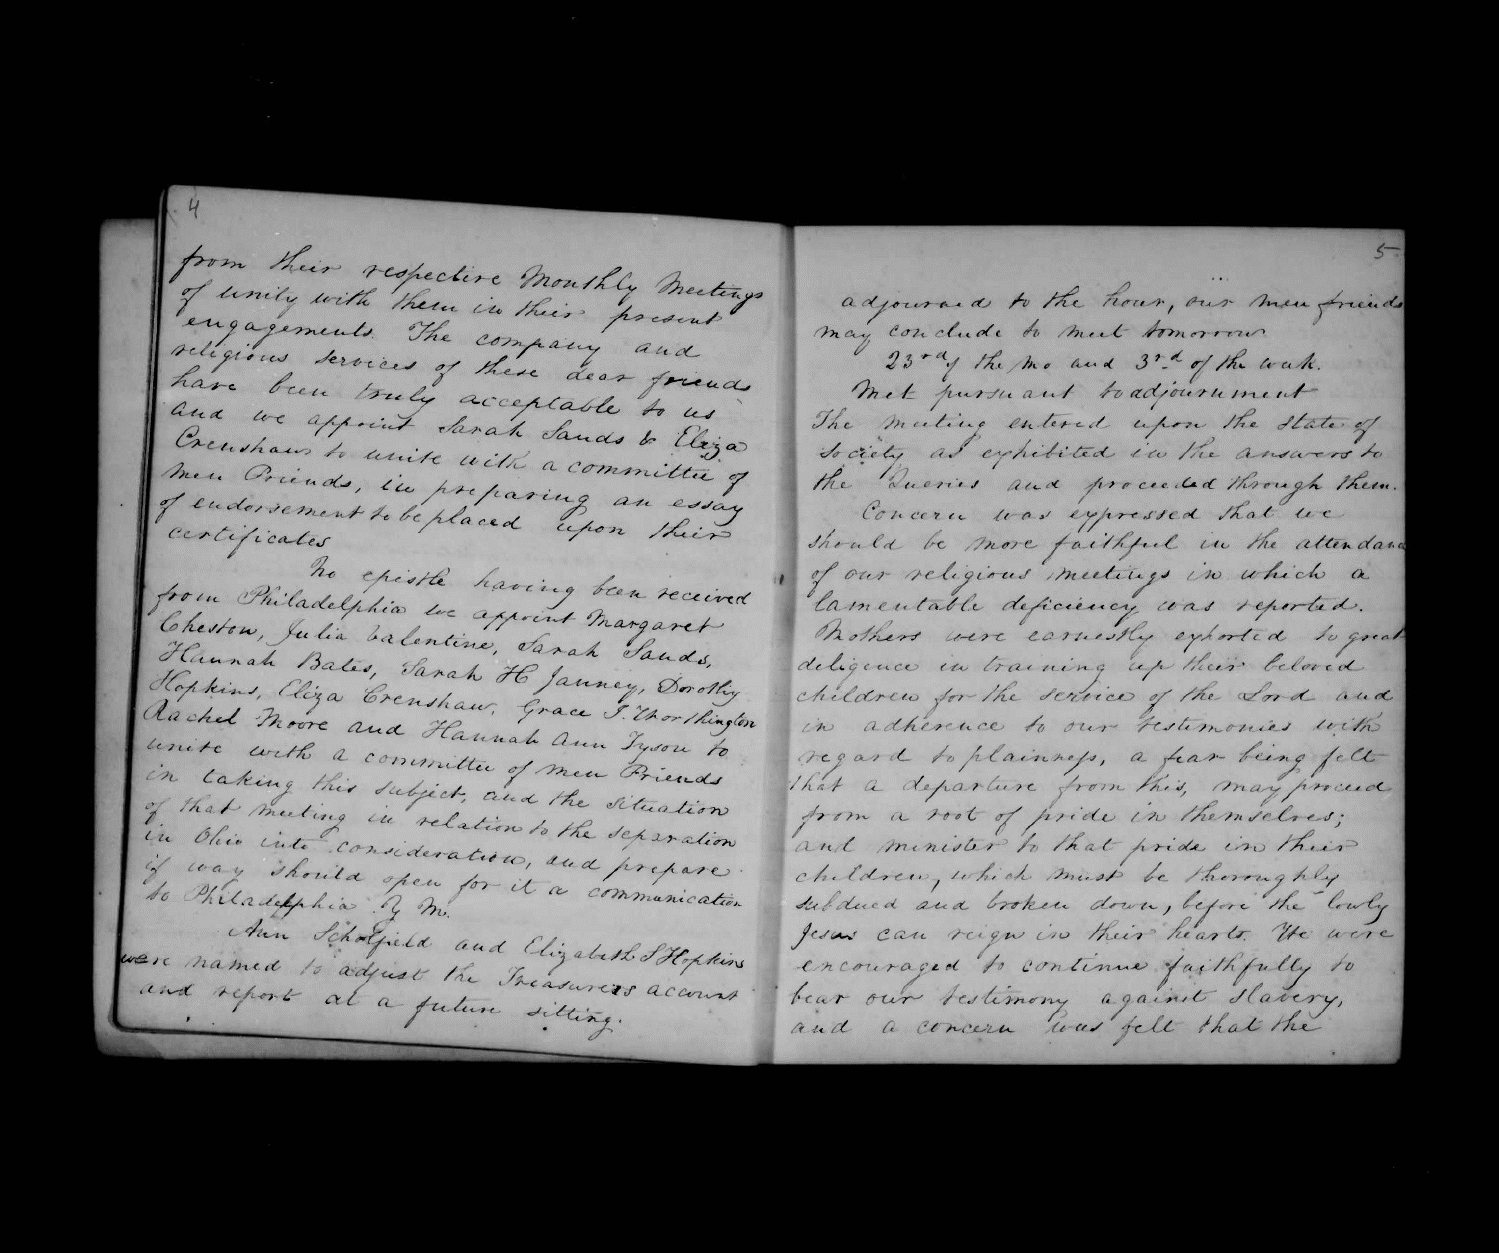 4
from their respective Monthly Meetings
of unity with them in their present
engagements. The company and
religious services of these dear friends
have been truly acceptable to us
and we appoint Sarah Sands & Eliza
Crenshaw to unite with a committee of
men Friends, in preparing an essay
of endorsement to be placed upon their
certificates
No epistle having been received
from Philadelphia we appoint Margaret
Cheston, Julia Valentine, Sarah Sands,
Hannah Bates, Sarah H Janney, Dorothy
Hopkins, Eliza Crenshaw, Grace T. Worthington
Rachel Moore and Hannah Ann Tyson to
unite with a committee of men Friends
in taking this subject, and the situation
of that meeting in relation to the separation
in Ohio into consideration, and prepare
if way should open for it a communication
to Philadelphia Y M.
Ann Scholfield and Elizabeth S Hopkins
were named to adjust the Treasurers account
and report at a future sitting.
5
adjourned to the hour, our men friends
may conclude to meet tomorrow
23rd of the Mo and 3rd of the week.
Met pursuant to adjournment
The meeting entered upon the state of
society as exhibited in the answers to
the Queries and proceeded through them.
Concern was expressed that we
should be more faithful in the attendance
of our religious meetings in which a
lamentable deficiency was reported.
Mothers were earnestly exhorted to great
deligence in training up their beloved
children for the service of the Lord and
in adherence to our testimonies with
regard to plainness, a fear being felt
that a departure from this, may proceed
from a root of pride in themselves;
and minister to that pride in their
children, which must be thoroughly
subdued and broken down, before the lowly
Jesus can reign in their hearts. We were
encouraged to continue faithfully to
bear our testimony against slavery,
and a concern was felt that the